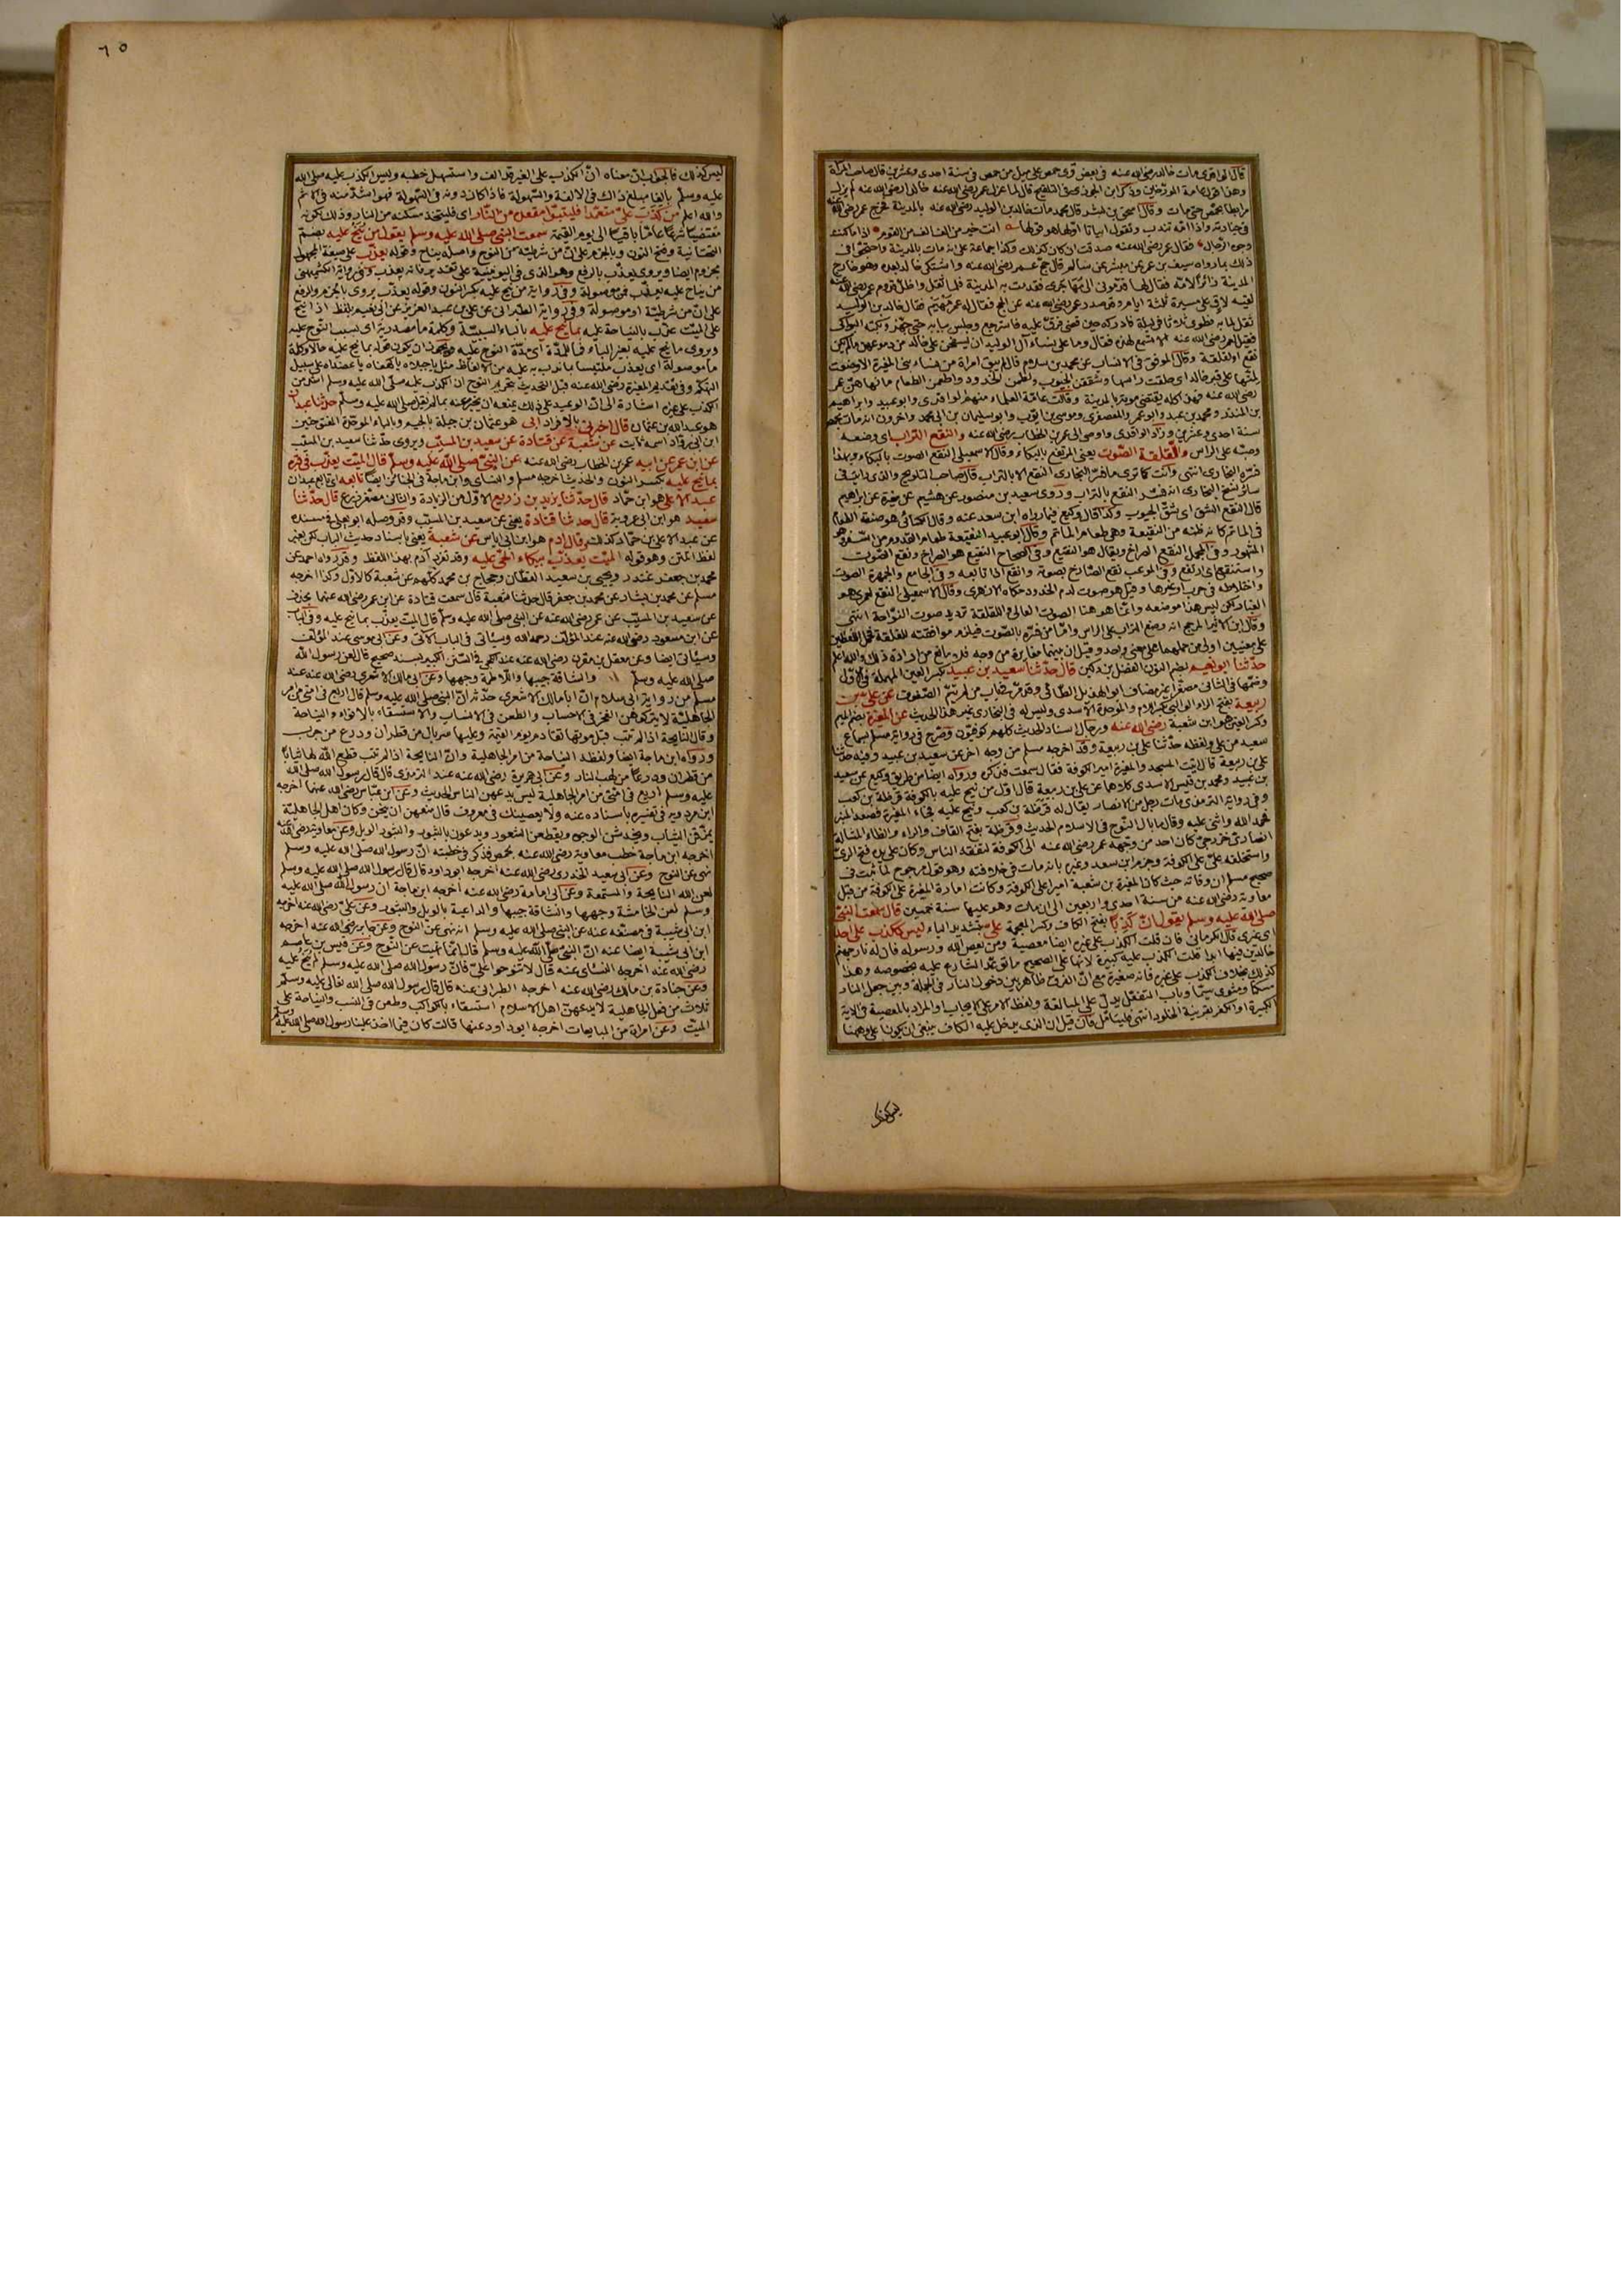 قال الواقدي مات خالد رضي الله عنه في بعض قرى حمص على ميل من حمص في سنة احدى وعشرين قال صاحب المرآة
وهذا قول عامة المؤرخين وذكر ابن الجوزي في التلقيح قال لما عزل عمر رضي الله عنه خالدا رضي الله عنه لم يزل
مرابطا بحمص حتى مات وقال اسحق بن بشر قال محمد مات خالد بن الوليد رضي الله عنه بالمدينة فخرج عمر رضي الله عنه
في جنازته واذا امه تندب وتقول ابياتا اولها هو قولها انت خير من الف الف من القوم اذا ما كنت
وجوه الرجال فقال عمر رضي الله عنه صدقت ان كان كذلك وكذا جماعة على انه مات بالمدينة واحتجوا في
ذلك بما رواه سيف بن عمر عن مبشر عن سالم قال حج عمر رضي الله عنه واشتكى خالد بعده وهو خارج
المدينة زائرا لامه فقال لها قدموني الى مهاجري فقدمت به المدينة فلما ثقل واظل قدوم عمر رضي الله عنه
لقيه لاق على مسيرة ثلثة ايام وقد صدر عمر رضي الله عنه عن الحج فقال له عمر مهيم فقال خالد بن الوليد
ثقل لما به فطوى ثلاثا في ليلة فادركه حين قضى فرق عليه فاسترجع وجلس ببابه حتى جهز وبكته البواكي
فقيل لعمر رضي الله عنه الا تسمع لهذه فقال وما على نساء آل الوليد ان يسفحن على خالد من دموعهن ما لم يكن
نقع او لقلقة وقال الموفق في الانساب عن محمد بن سلام قال لم يبق امرأة من نساء بني المغيرة الا وضعت
لمتها على قبر خالد اي حلقت راسها وشققن الجيوب ولطمن الخدود واطعمن الطعام ما نهاهن عمر
رضي الله عنه فهذا كله يقتضي موته بالمدينة وقالت عامة العلماء منهم الواقدي وابو عبيد وابراهيم
بن المنذر ومحمد بن عبد الله وابو عمر والعصفري وموسى بن ايوب وابو سليمان بن ابي محمد وآخرون انه مات بحمص
سنة احدى وعشرين وزاد الواقدي واوصى الى عمر بن الخطاب رضي الله عنه والنقع التراب اي وضعه
وصبه على الراس واللقلقة الصوت يعني المرتفع بالبكاء وقال الاسمعيلي النقع الصوت بالبكاء وبهذا
فسره البخاري انتهى وانت كما ترى ما فسر البخاري النقع الا بالتراب قال صاحب التلويح والذي رايت في
سائر نسخ البخاري انه فسر النقع بالتراب وروى سعيد بن منصور عن هشيم عن مغيرة عن ابراهيم
قال النقع الشق اي شق الجيوب وكذا قال وكيع فيما رواه ابن سعد عنه وقال الكسائي هو صنعة الطعام
في الماتم كانه ظنه من النقيعة وهي طعام الماتم وقال ابو عبيد النقيعة طعام القدوم من السفر وهو
المشهور وفي المجمل النقع الصراخ ويقال هو النقيع وفي الصحاح النقيع هو الصراخ ونقع الصوت
واستنقع اي ارتفع وفي الموعب نقع الصارخ بصوته وانقع اذا تابعه وفي الجامع والجمهرة الصوت
واختلاطه في حرب او غيرها وقيل هو صوت لدم الخدود حكاه الازهري وقال الاسمعيلي النقع لعمري هو
الغبار ولكن ليس هذا موضعه وانما هو هنا الصوت العالي واللقلقة ترديد صوت النواحة انتهى
وقال ابن الاثير المرجح انه وضع التراب على الراس واما من فسره بالصوت فيلزم موافقته للقلقة فحمل اللفظين
على معنيين اولى من حملهما على معنى واحد وقيل ان بينهما مغايرة من وجه فلا مانع من ارادة ذلك والله اعلم
حدثنا ابو نعيم بضم النون الفضل بن دكين قال حدثنا سعيد بن عبيد بكسر العين المهملة في الاول
وضمها في الثاني مصغرا غير مضاف ابو الهذيل الطائي وقد مر في باب من لم يتم الصفوف عن علي بن
ربيعة بفتح الراء الوالبي بكسر اللام والموحدة الاسدي وليس له في البخاري غير هذا الحديث عن المغيرة بضم الميم
وكسر الغين هو ابن شعبة رضي الله عنه ورجال اسناد الحديث كلهم كوفيون وصرح في رواية مسلم بسماع
سعيد من علي ولفظه حدثنا علي بن ربيعة وقد اخرجه مسلم من وجه آخر عن سعيد بن عبيد وفيه حدثنا
علي بن ربيعة قال اتيت المسجد والمغيرة امير الكوفة فقال سمعت فذكره ورواه ايضا من طريق وكيع عن سعيد
بن عبيد ومحمد بن قيس الاسدي كلاهما عن علي بن ربيعة قال اول من نيح عليه بالكوفة قرظة بن كعب
وفي رواية الترمذي مات رجل من الانصار يقال له قرظة بن كعب ونيح عليه فجاء المغيرة فصعد المنبر
فحمد الله واثنى عليه وقال ما بال النوح في الاسلام الحديث وقرظة بفتح القاف والراء والظاء المشالة
انصاري خزرجي كان احد من وجهه عمر رضي الله عنه الى الكوفة ليفقه الناس وكان على يده فتح الري
واستخلفه علي على الكوفة وجزم ابن سعد وغيره بانه مات في خلافته وهو قول مرجوح لما ثبت في
صحيح مسلم ان وفاته حيث كان المغيرة بن شعبة اميرا على الكوفة وكانت امارة المغيرة على الكوفة من قبل
معاوية رضي الله عنه من سنة احدى واربعين الى ان مات وهو عليها سنة خمسين قال سمعت النبي
صلى الله عليه وسلم يقول ان كذبا بفتح الكاف وكسر المعجمة علي بتشديد الياء ليس ككذب على احد
اي غيري قال الكرماني فان قلت الكذب على غيره ايضا معصية ومن يعص الله ورسوله فان له نار جهنم
خالدين فيها ابدا قلت الكذب عليه كبيرة لانها على الصحيح ما توعد الشارع عليه بخصوصه وهذا
كذلك بخلاف الكذب على غيره فانه صغيرة مع ان الفرق ظاهر بين دخول النار في الجملة وبين جعل النار
مسكنا ومثوى سيما وباب التفعل يدل على المبالغة ولفظ الامر على الايجاب والمراد بالمعصية في الآية
الكبيرة او الكفر بقرينة الخلود انتهى فليتامل فان قيل ان الذي يدخل عليه الكاف ينبغي ان يكون اعلى وههنا
ليس كذلك
٦٥
ليس كذلك فالجواب ان معناه ان الكذب على الغير قد الف واستسهل خطبه وليس الكذب عليه صلى الله
عليه وسلم بالغا مبلغ ذاك في الالفة والسهولة فاذا كان دونه في السهولة فهو اشد منه في الاثم
والله اعلم من كذب علي متعمدا فليتبوأ مقعده من النار اي فليتخذ مسكنه من النار وذلك لكونه
مقتضيا شرعا عاما باقيا الى يوم القيمة سمعت النبي صلى الله عليه وسلم يقول من ينح عليه بضم
التحتانية وفتح النون وبالجزم على ان من شرطية من النوح واصله يناح وقوله يعذب على صيغة المجهول
مجزوم ايضا ويروى يعذب بالرفع وهو الذي في اليونينية على تقدير فانه يعذب وفي رواية الكشميهني
من يناح عليه يعذب فمن موصولة وفي رواية من نيح عليه بكسر النون وقوله يعذب يروى بالجزم والرفع
على ان من شرطية او موصولة وفي رواية الطبراني عن علي بن عبد العزيز عن ابي نعيم بلفظ اذا نيح
على الميت عذب بالنياحة عليه بما نيح عليه بالباء السببية وكلمة ما مصدرية اي بسبب النوح عليه
ويروى ما نيح عليه بغير الباء فما للمدة اي مدة النوح عليه ويجوز ان يكون قوله بما نيح عليه حالا وكلمة
ما موصولة اي يعذب ملتبسا بما ندب به عليه من الالفاظ مثل يا جبلاه يا كهفاه يا عضداه على سبيل
التهكم وفي تقديم المغيرة رضي الله عنه قبل التحديث بتحريم النوح ان الكذب عليه صلى الله عليه وسلم اشد من
الكذب على غيره اشارة الى ان الوعيد على ذلك يمنعه ان يخبر عنه بما لم يقل صلى الله عليه وسلم حدثنا عبدان
هو عبد الله بن عثمان قال اخبرني بالافراد ابي هو عثمان بن جبلة بالجيم وبالباء الموحدة المفتوحتين
ابن ابي رواد اسمه ثابت عن شعبة عن قتادة عن سعيد بن المسيب ويروى حدثنا سعيد بن المسيب
عن ابن عمر عن ابيه عمر بن الخطاب رضي الله عنه عن النبي صلى الله عليه وسلم قال الميت يعذب في قبره
بما نيح عليه بكسر النون والحديث اخرجه مسلم والنسائي وابن ماجة في الجنائز ايضا تابعه اي تابع عبدان
عبد الاعلى هو ابن حماد قال حدثنا يزيد بن زريع الاول من الزيادة والثاني مصغر زرع قال حدثنا
سعيد هو ابن ابي عروبة قال حدثنا قتادة يعني عن سعيد بن المسيب وقد وصله ابو يعلى في مسنده
عن عبد الاعلى بن حماد كذلك وقال آدم هو ابن ابي اياس عن شعبة يعني باسناد حديث الباب لكن بغير
لفظ المتن وهو قوله الميت يعذب ببكاء الحي عليه وقد تفرد آدم بهذا اللفظ وقد رواه احمد عن
محمد بن جعفر غندر ويحيى بن سعيد القطان وحجاج بن محمد كلهم عن شعبة كالاول وكذا اخرجه
مسلم عن محمد بن بشار عن محمد بن جعفر قال حدثنا شعبة قال سمعت قتادة عن ابن عمر رضي الله عنهما بحذف
عن سعيد بن المسيب عن عمر رضي الله عنه عن النبي صلى الله عليه وسلم قال الميت يعذب بما نيح عليه وفي الباب
عن ابن مسعود رضي الله عنه عند المؤلف رحمه الله وسيأتي في الباب الآتي وعن ابي موسى عند المؤلف
وسيأتي ايضا وعن معقل بن مقرن رضي الله عنه عند الكجي في السنن الكبير بسند صحيح قال لعن رسول الله
صلى الله عليه وسلم والشاقة جيبها واللاطمة وجهها وعن ابي مالك الاشعري رضي الله عنه عند
مسلم من رواية ابي سلام ان ابا مالك الاشعري حدثه ان النبي صلى الله عليه وسلم قال اربع في امتي من امر
الجاهلية لا يتركونهن الفخر في الاحساب والطعن في الانساب والاستسقاء بالانواء والنياحة
وقال النايحة اذا لم تتب قبل موتها تقام يوم القيمة وعليها سربال من قطران ودرع من جرب
ورواه ابن ماجة ايضا ولفظه النياحة من امر الجاهلية وان النايحة اذا لم تتب قطع الله لها ثيابا
من قطران ودرعا من لهب النار وعن ابي هريرة رضي الله عنه عند الترمذي قال قال رسول الله صلى الله
عليه وسلم اربع في امتي من امر الجاهلية ليس يدعهن الناس الحديث وعن ابن عباس رضي الله عنهما اخرجه
ابن مردويه في تفسيره باسناده عنه ولا يعصينك في معروف قال منعهن ان ينحن وكان اهل الجاهلية
يمزقن الثياب ويخدشن الوجوه ويقطعن الشعور ويدعون بالثبور والثبور الويل وعن معاوية رضي الله عنه
اخرجه ابن ماجة خطب معاوية رضي الله عنه بحمص فذكر في خطبته ان رسول الله صلى الله عليه وسلم
نهى عن النوح وعن ابي سعيد الخدري رضي الله عنه اخرجه ابو داود قال قال رسول الله صلى الله عليه وسلم
لعن الله النايحة والمستمعة وعن ابي امامة رضي الله عنه اخرجه ابن ماجة ان رسول الله صلى الله عليه
وسلم لعن الخامشة وجهها والشاقة جيبها والداعية بالويل والثبور وعن علي رضي الله عنه اخرجه
ابن ابي شيبة في مصنفه عنه عن النبي صلى الله عليه وسلم انه نهى عن النوح وعن جابر رضي الله عنه اخرجه
ابن ابي شيبة ايضا عنه ان النبي صلى الله عليه وسلم قال انما نهيت عن النوح وعن قيس بن عاصم
رضي الله عنه اخرجه النسائي عنه قال لا تنوحوا علي فان رسول الله صلى الله عليه وسلم لم ينح عليه
وعن جنادة بن مالك رضي الله عنه اخرجه الطبراني عنه قال قال رسول الله صلى الله تعالى عليه وسلم
ثلاث من فعل الجاهلية لا يدعهن اهل الاسلام استسقاء بالكواكب وطعن في النسب والنياحة على
الميت وعن امراة من المبايعات اخرجه ابو داود عنها قالت كان فيما اخذ علينا رسول الله صلى الله عليه وسلم